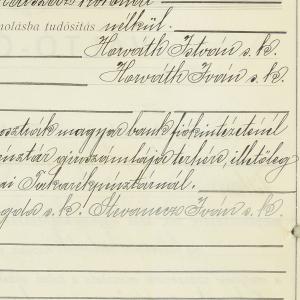 molásba tudósitás nélkül.
Horváth István s. k.
Horváth Iván s. k.
osztrák magyar bank fiókintézeténél
pénztár girószámlája terhére, illetőleg
ai Takarékpénztárnál.
s. k. Stevanecz Iván s. k.